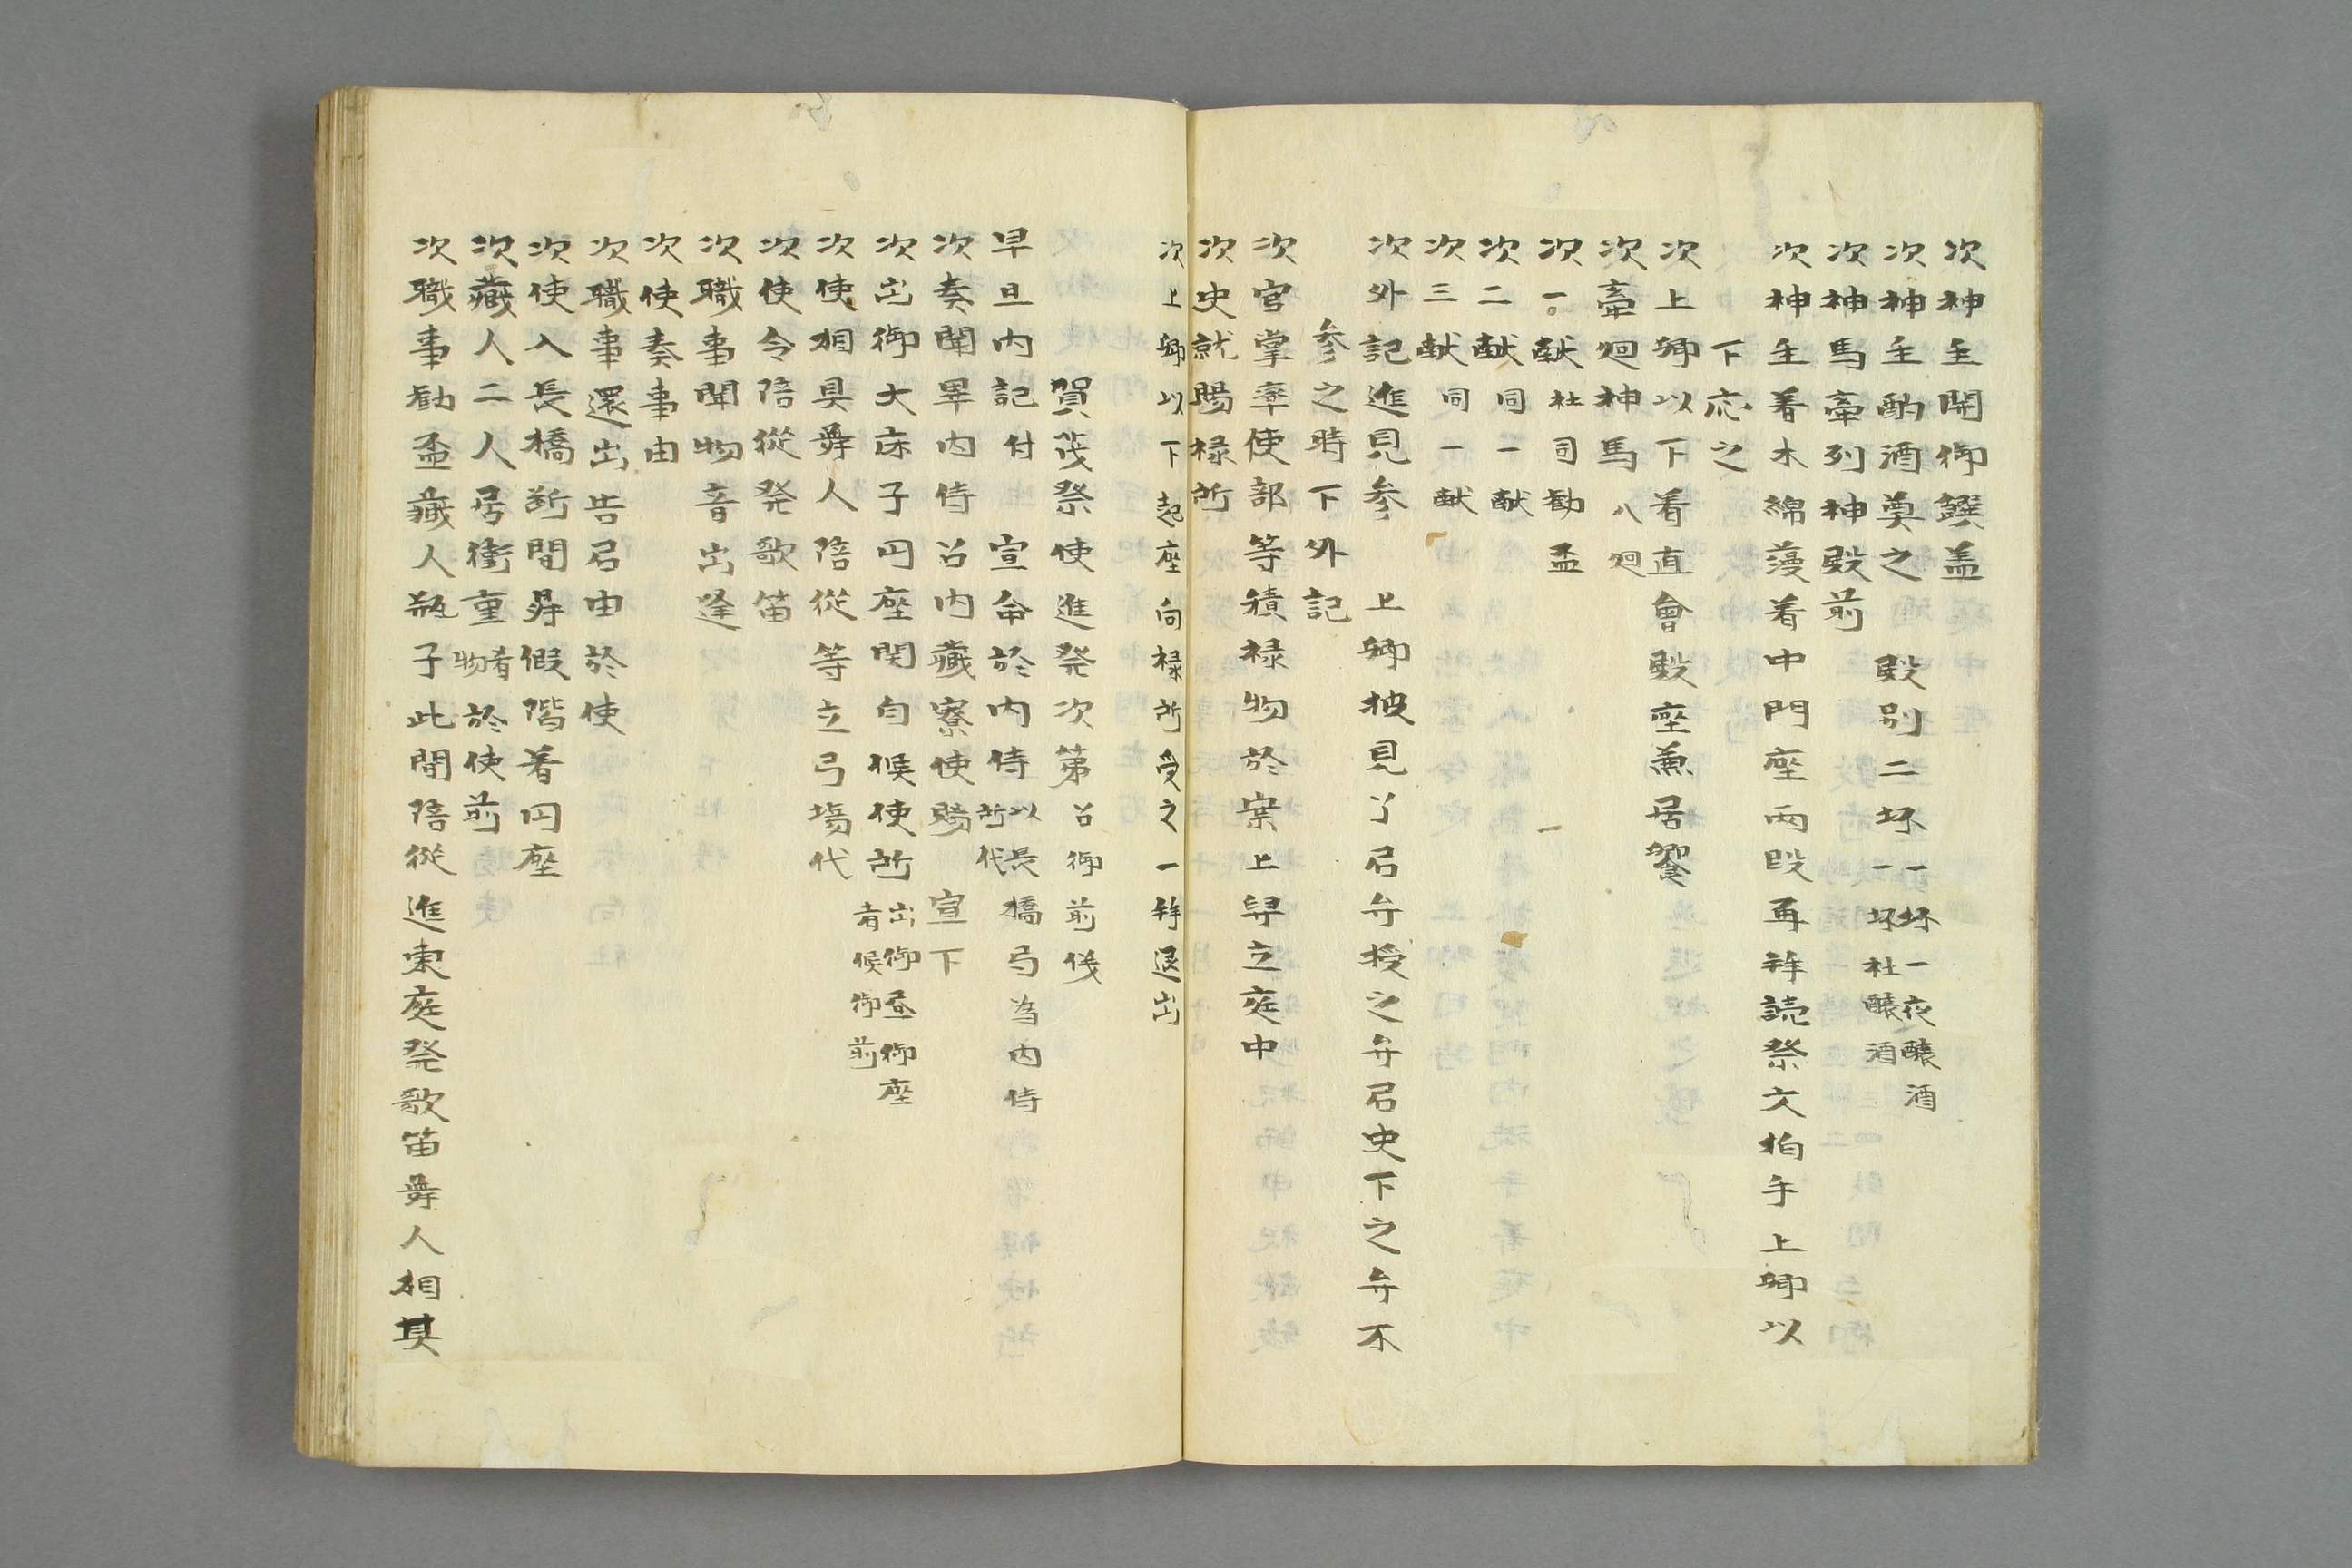 次神主開御饌盖
次神主酌酒奠之 殿別二坏一坏一夜醸酒一坏社醸酒
次神馬牽列神殿前
次神主着木綿蘰着中門座両段再拝読祭文拍手上卿以
下応之
次上卿以下着直會殿座兼居饗
次牽廻神馬八廻
次一献社司勧盃
次二献同一献
次三献同一献
次外記進見参 上卿披見了召弁授之弁召史下之弁不
参之時下外記
次官掌率使部等積禄物於案上舁立庭中
次史就賜禄所
次上卿以下起座向禄所受之一拝退出
賀茂祭使進発次第召御前儀
早旦内記付 宣命於内侍以長橋弓為内侍所代
次奏聞畢内侍召内蔵寮使賜 宣下
次出御大床子円座関白候使所出御昼御座者候御前
次使相具舞人陪従等立弓場代
次使令陪従発歌笛
次職事聞物音出逢
次使奏事由
次職事還出告召由於使
次使入長橋断間昇假階着円座
次蔵人二人居衝重肴物於使前
次職事勧盃蔵人瓶子此間陪従進東庭発歌笛舞人相具